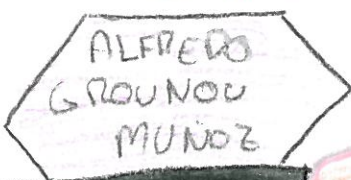 ALFREDO
GROUNOU
MUÑOZ